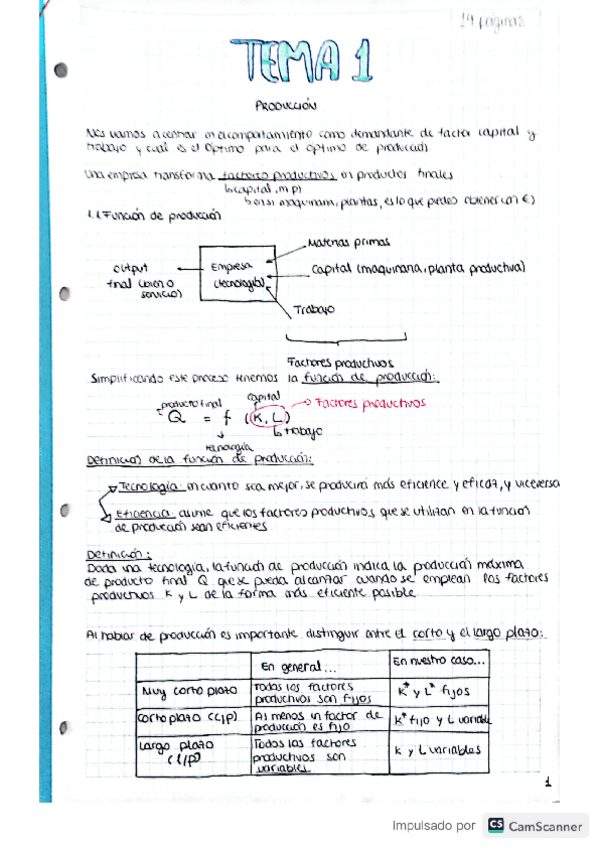 14 páginas
TEMA 1
PRODUCCIÓN
Nos vamos a centrar en el comportamiento como demandante de factor capital y
trabajo y cual es el óptimo para el óptimo de producción
Una empresa transforma factores productivos en productos finales
↳ capital, mp)
↳ en si maquinaria, plantas, es lo que puedes obtener con €)
1.1 Función de producción
Materias primas
output
final (bien o
servicio)
Empresa
(tecnología)
Capital (maquinaria, planta productiva)
Trabajo
Factores productivos
Simplificando este proceso tenemos la función de producción:
producto final
capital
Q = f (K, L)
→ Factores productivos
↳ trabajo
tecnología
Definición de la función de producción:
Tecnología en cuanto sea mejor, se producirá más eficiente y eficaz, y viceversa
Eficiencia asume que los factores productivos que se utilizan en la función
de producción sean eficientes
Definición:
Dada una tecnología, la función de producción indica la producción máxima
de producto final Q que se pueda alcanzar cuando se emplean los factores
productivos K y L de la forma más eficiente posible
Al hablar de producción es importante distinguir entre el corto y el largo plazo:
En general...
En nuestro caso...
Muy corto plazo
Todos los factores
productivos son fijos
K* y L* fijos
Corto plazo (C/P)
Al menos un factor de
producción es fijo
K* fijo y L variable
Largo plazo
(L/P)
Todos los factores
productivos son
variables
K y L variables
1
Impulsado por CS CamScanner